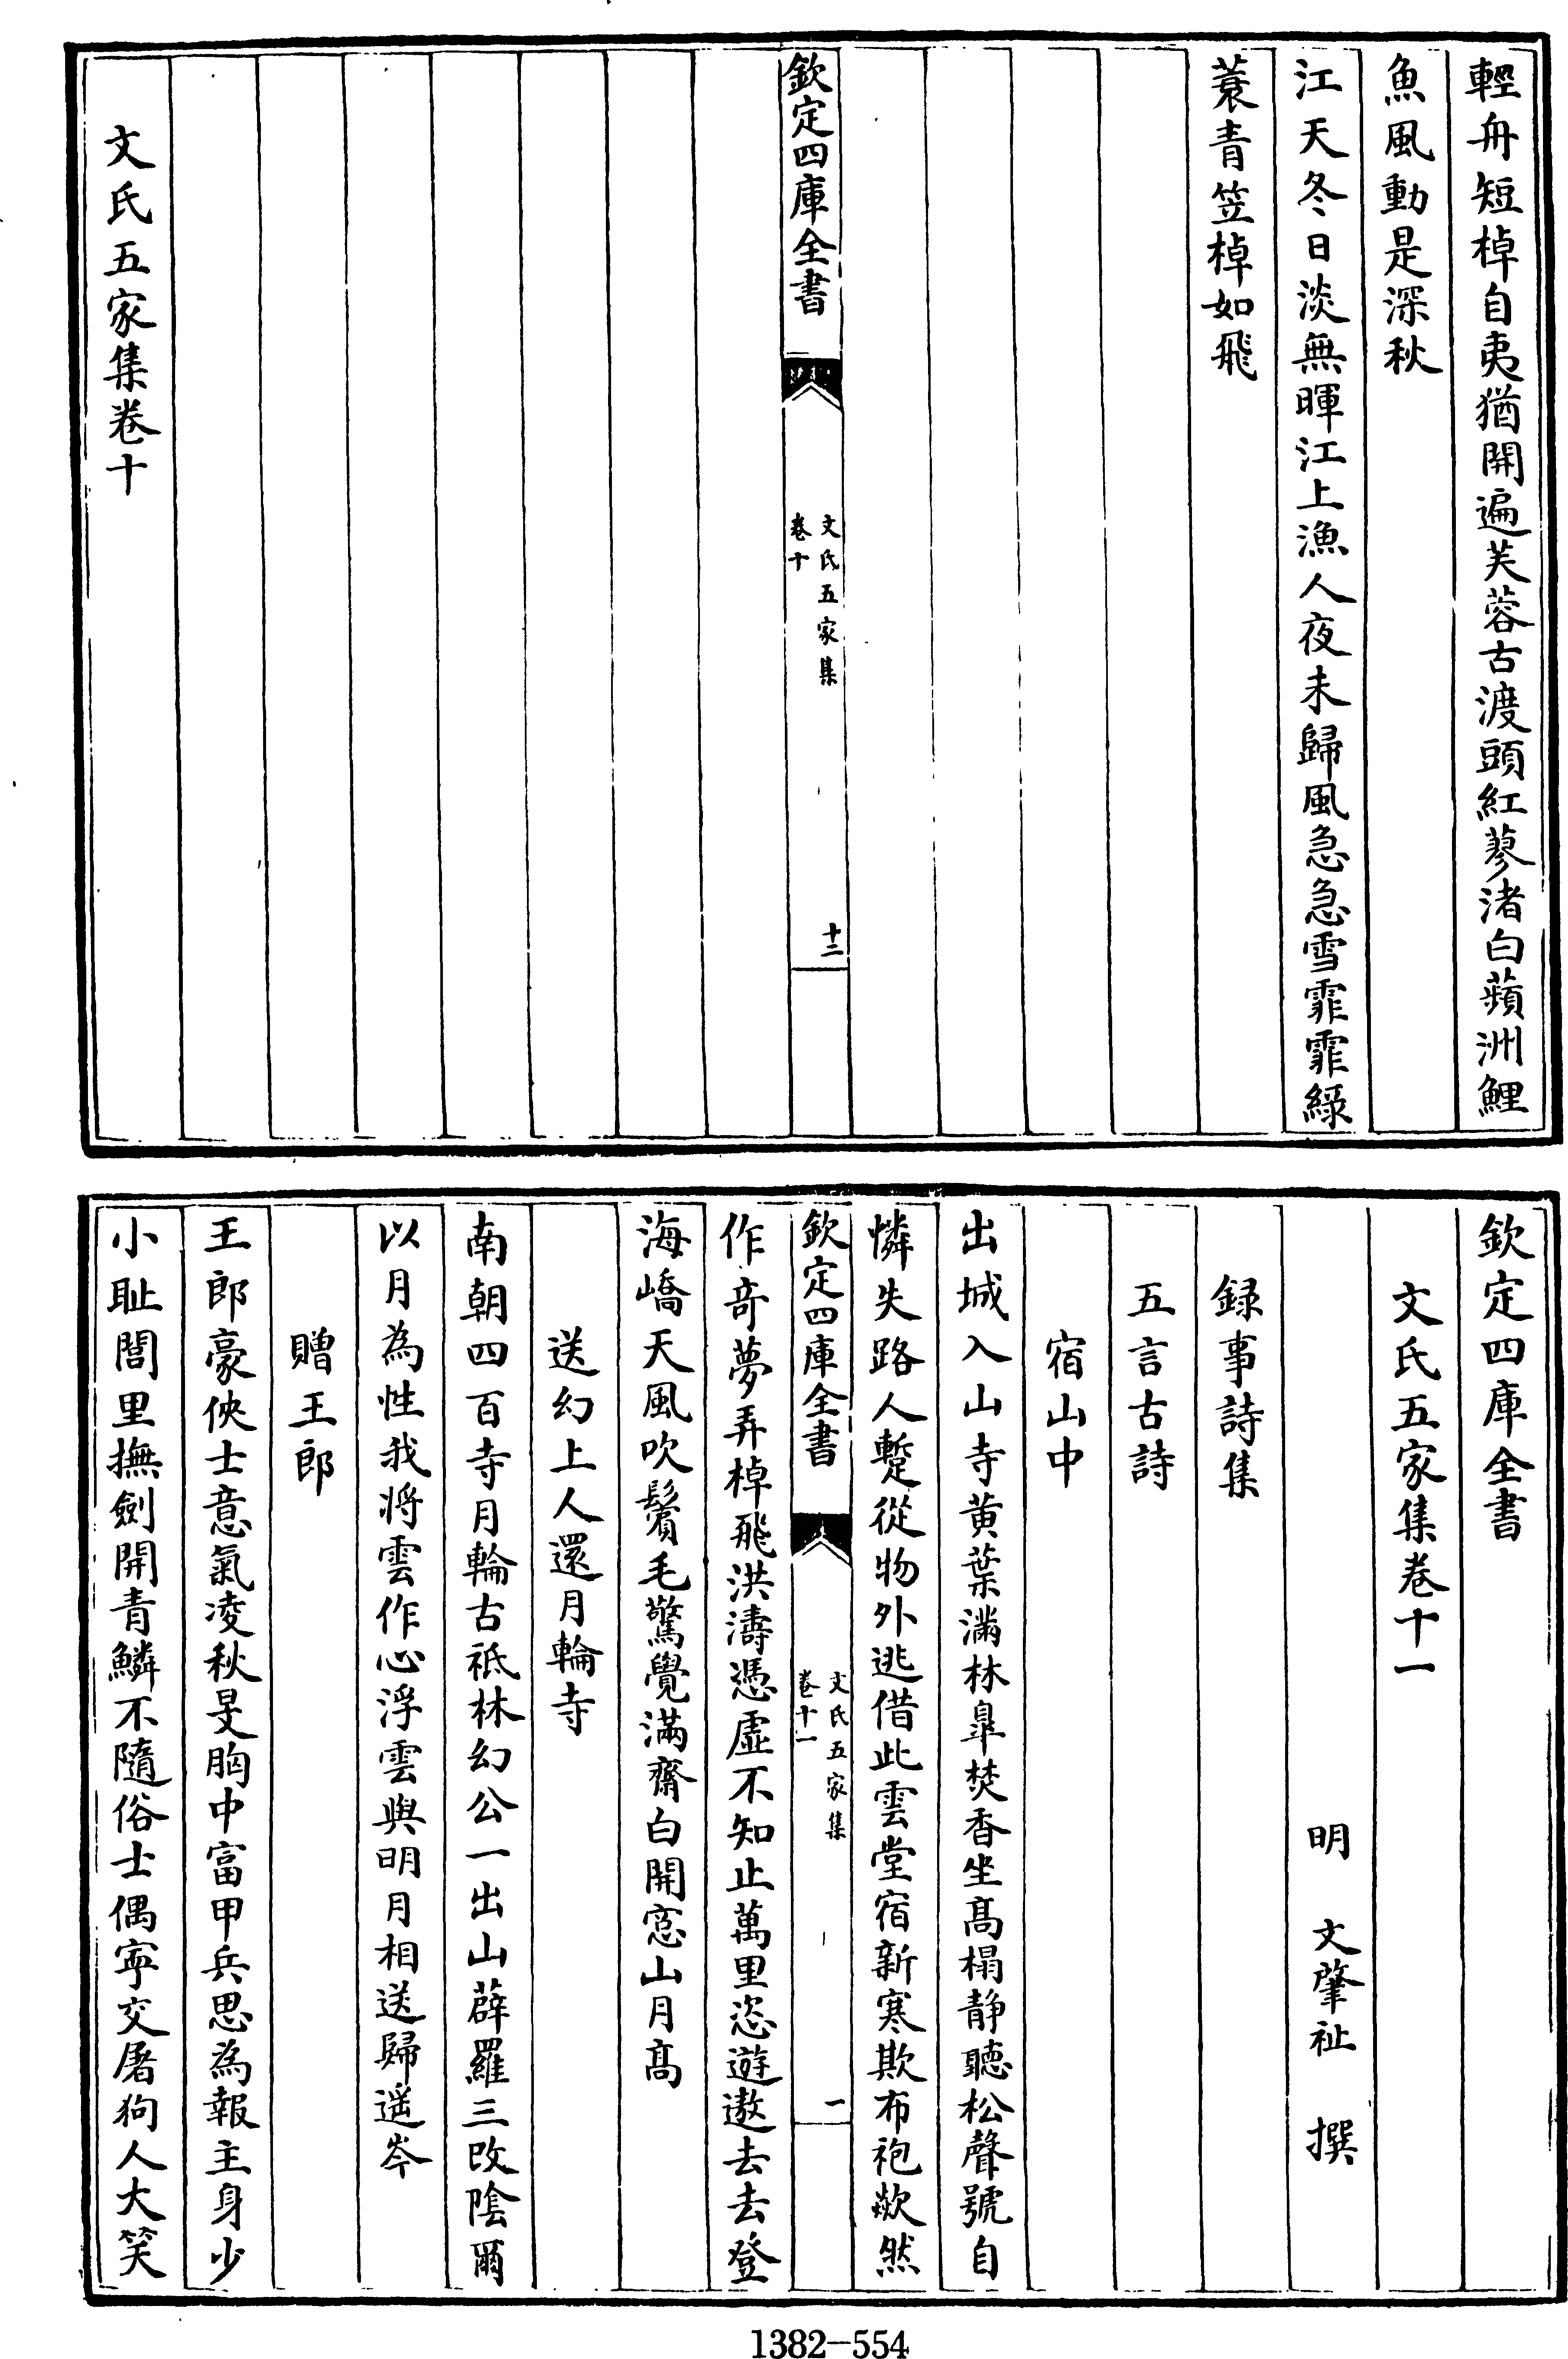 輕舟短棹自夷猶開遍芙蓉古渡頭紅蓼渚白蘋洲鯉
魚風動是深秋
江天冬日淡無暉江上漁人夜未歸風急急雪霏霏綠
蓑青笠棹如飛
欽定四庫全書
文氏五家集
卷十
十二
文氏五家集卷十
欽定四庫全書
文氏五家集卷十一
明 文肇祉 撰
録事詩集
五言古詩
宿山中
出城入山寺黄葉滿林皐焚香坐髙榻静聽松聲號自
憐失路人蹔從物外逃借此雲堂宿新寒欺布袍歘然
欽定四庫全書
文氏五家集
卷十一
一
作竒夢弄棹飛洪濤憑虛不知止萬里恣遊遨去去登
海嶠天風吹鬢毛驚覺滿齋白開窓山月髙
送幻上人還月輪寺
南朝四百寺月輪古祗林幻公一出山薜羅三改陰爾
以月為性我將雲作心浮雲與明月相送歸遥岑
贈王郎
王郎豪俠士意氣凌秋旻胸中富甲兵思為報主身少
小耻閭里撫劍開青鱗不隨俗士偶寧交屠狗人大笑
1382-554